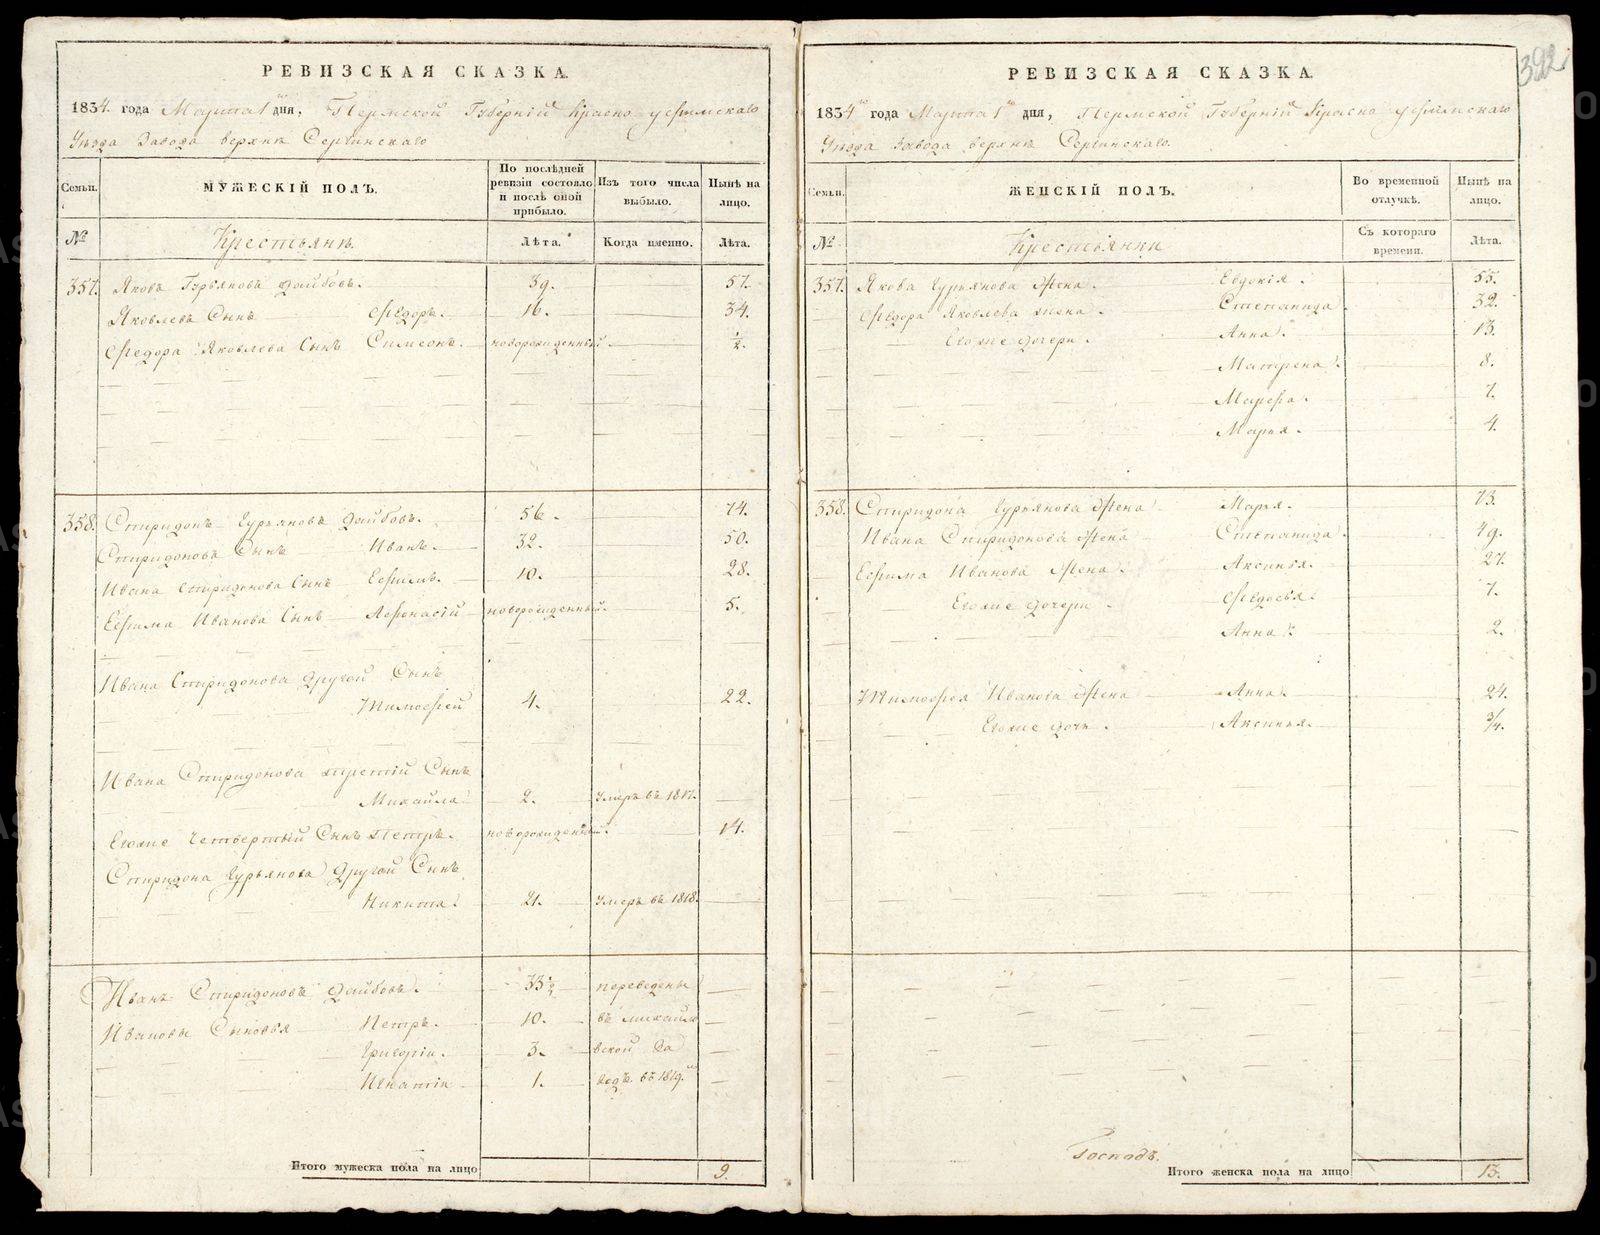 392
РЕВИЗСКАЯ СКАЗКА.
1834. года Марта 1го дня, Пермской Губерній Красно уфимскаго
Уезда Завода верхне Сергинскаго
Семьи.
МУЖЕСКІЙ ПОЛЪ.
По послѣдней ревизіи состояло и послѣ оной прибыло.
Изъ того числа выбыло.
Нынѣ на лицо.
№
Крестьяне.
Лѣта.
Когда именно.
Лѣта.
357. Яковъ Гурьяновъ Дайбовъ. 39. 57.
Яковлева Сынъ Ѳедоръ. 16. 34.
Ѳедора Яковлева Сынъ Симеонъ. новорожденный. ½.
358. Спиридонъ Гурьяновъ Дайбовъ. 56. 74.
Спиридонова Сынъ Иванъ. 32. 50.
Ивана Спиридонова Сынъ Ефимъ. 10. 28.
Ефима Иванова Сынъ Афонасій новорожденный. 5.
Ивана Спиридонова Другой Сынъ
Тимофей 4. 22.
Ивана Спиридонова третій Сынъ
Михайла 2. Умеръ въ 1817.
Егоже Четвертый Сынъ Петръ. новорожденный. 14.
Спиридона Гурьянова Другой Сынъ
Никита. 21. Умеръ въ 1818.
Иванъ Спиридоновъ Дайбовъ. 33½ переведены
Ивановы Сыновья Петръ. 10. въ михайло
Григорій. 3. вской За
Игнатій 1. водъ въ 1819.
Итого мужеска пола на лицо 9.
РЕВИЗСКАЯ СКАЗКА.
1834го года Марта 1го дня, Пермской Губерній Красно уфимскаго
Уезда Завода верхне Сергинскаго.
Семьи.
ЖЕНСКІЙ ПОЛЪ.
Во временной отлучкѣ.
Нынѣ на лицо.
№
Крестьянки
Съ котораго времени.
Лѣта.
357. Якова Гурьянова Жена. Евдокія. 55.
Ѳедора Яковлева жена. Степанида. 32.
Егоже дочери. Анна. 13.
Матрена. 8.
Марфа. 7.
Марья. 4.
358. Спиридона Гурьянова Жена Марья. 73.
Ивана Спиридонова Жена Степанида. 49.
Ефима Иванова Жена. Аксинья. 27.
Егоже дочери. Ѳедосья. 7.
Анна. 2.
Тимофея Иванова Жена Анна. 24.
Егоже дочь. Аксинья. ¾.
Господъ.
Итого женска пола на лицо 13.